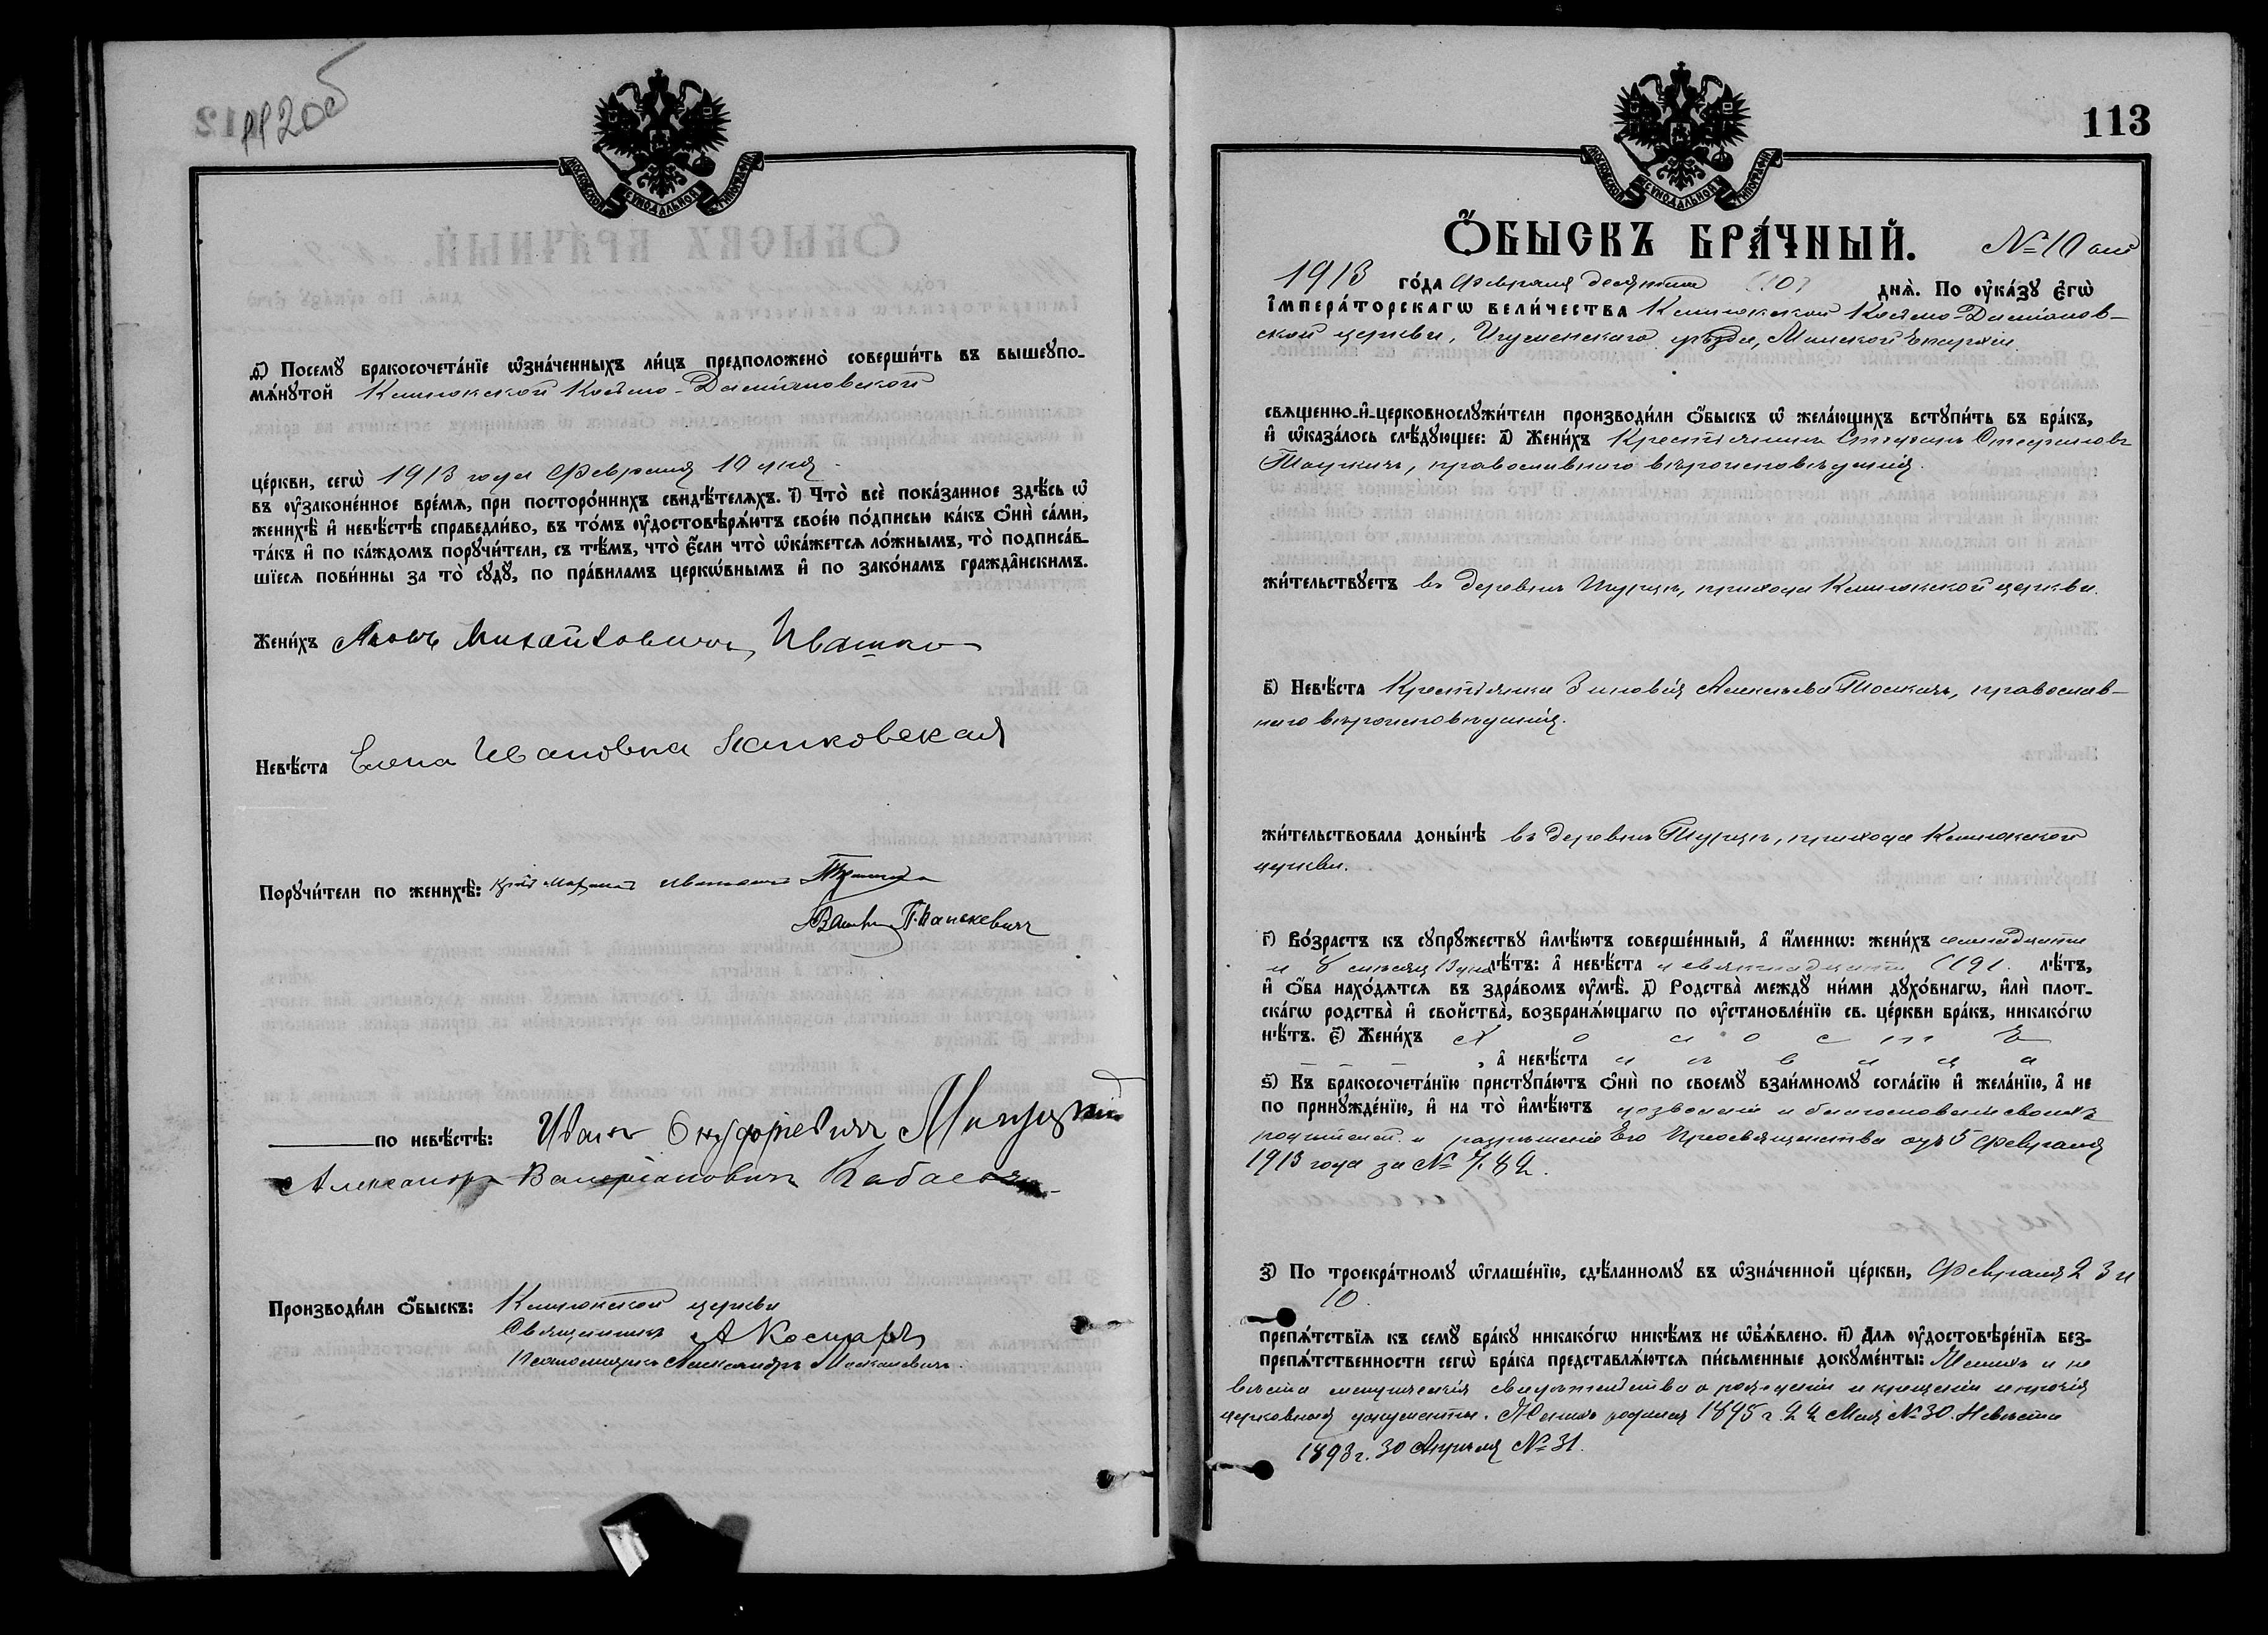 112об
МОСКОВСКОЙ СѴНОДАЛЬНОЙ ТИПОГРАФІИ
д҃) Посемꙋ̀ бракосочета́нїе ѡ҆зна́ченныхъ ли́цъ предположено̀ соверши́ть въ вышеꙋпо-
мѧ́нꙋтой Клинокской Космо-Даміановской
це́ркви, сегѡ̀ 1913 года Февраля 10 дня.
въ ᲂу҆законе́нное вре́мѧ, при посторо́ннихъ свидѣ́телѧхъ. і҃) Что̀ всѐ пока́занное здѣ́сь ѡ҆
женихѣ̀ и҆ невѣ́стѣ справедли́во, въ то́мъ ᲂу҆достовѣрѧ́ютъ свое́ю по́дписью ка́къ ѻ҆нѝ са́ми,
та́къ и҆ по ка́ждомъ порꙋчи́тели, съ тѣ́мъ, что̀ є҆́сли что̀ ѡ҆ка́жетсѧ ло́жнымъ, то̀ подписа́в-
шїесѧ пови́нны за то̀ сꙋдꙋ̀, по пра́виламъ церкѡ́внымъ и҆ по зако́намъ гражда̂нскимъ.
Жени́хъ Яковъ Михайловичъ Ивашко
Невѣ́ста Елена Ивановна
Порꙋчи́тели по женихѣ̀:
по невѣ́стѣ: Иванъ Онуфріевичъ
Александръ Валеріановичъ
Производи́ли ѻ҆́быскъ: Клинокской церкви
Священникъ А
Псаломщикъ Александръ
113
МОСКОВСКОЙ СѴНОДАЛЬНОЙ ТИПОГРАФІИ
Ѻ҆́БЫСКЪ БРА́ЧНЫЙ. № 10
1913 го́да Февраля десятаго (10) днѧ̀. По ᲂу҆ка́зꙋ є҆гѡ̀
і҆мпера́торскагѡ вели́чества Клинокской Космо-Даміанов-
ской церкви, Игуменскаго уѣзда, Минской Епархіи
свѧщенно-и҆-церковнослꙋжи́тели производи́ли ѻ҆́быскъ ѡ҆ жела́ющихъ встꙋпи́ть въ бра́къ,
и҆ ѡ҆каза́лось слѣ́дꙋющее: а҃) Жени́хъ Крестьянинъ Стефанъ Стефановъ
православнаго вѣроисповѣданія.
жи́тельствꙋетъ въ деревнѣ Турцѣ, прихода Клинокской церкви.
в҃) Невѣ́ста Крестьянка Зиновія Алексѣева православ-
наго вѣроисповѣданія.
жи́тельствовала доны́нѣ въ деревнѣ Турцѣ, прихода Клинокской
церкви.
г҃) Во́зрастъ къ сꙋпрꙋ́жествꙋ и҆мѣ́ютъ соверше́нный, а҆ и҆́меннѡ: жени́хъ семнадцати
и 8 мѣсяц 13 дн лѣ́тъ: а҆ невѣ́ста девятнадцати (19). лѣ́тъ,
и҆ ѻ҆́ба нахо́дѧтсѧ въ здра́вомъ ᲂу҆мѣ̀. д҃) Родства̀ междꙋ ни́ми дꙋхо́внагѡ, и҆лѝ плот-
ска́гѡ родства̀ и҆ свойства̀, возбранѧ́ющагѡ по ᲂу҆становле́нїю св. це́ркви бра́къ, никако́гѡ
нѣ́тъ. є҃) Жени́хъ холостъ
, а҆ невѣ́ста дѣвица
ѕ҃) Къ бракосочета́нїю пристꙋпа́ютъ ѻ҆нѝ по своемꙋ̀ взаи́мномꙋ согла́сїю и҆ жела́нїю, а҆ не
по принꙋжде́нїю, и҆ на то̀ и҆мѣ́ютъ дозволеніе и благословеніе своихъ
родителей и разрѣшеніе Его Преосвященства отъ 5 Февраля
1913 года за №
з҃) По троекра́тномꙋ ѡ҆глаше́нїю, сдѣ́ланномꙋ въ ѡ҆зна́ченной це́ркви, Февраля 2 3 и
10.
препѧ́тствїѧ къ семꙋ̀ бра́кꙋ никако́гѡ никѣ́мъ не ѡ҆б̾ѧ́влено. и҃) Длѧ ᲂу҆достовѣре́нїѧ без-
препѧ́тственности сегѡ̀ бра́ка представлѧ́ютсѧ пи́сьменные докꙋме́нты: Жениха и не
вѣсты метрическія свидѣтельства о рожденіи и крещеніи и прочія
церковныя документы. Женихъ родился 1895 г. 22 Мая № 30. Невѣста
1893 г. 30 Апрѣля № 31.